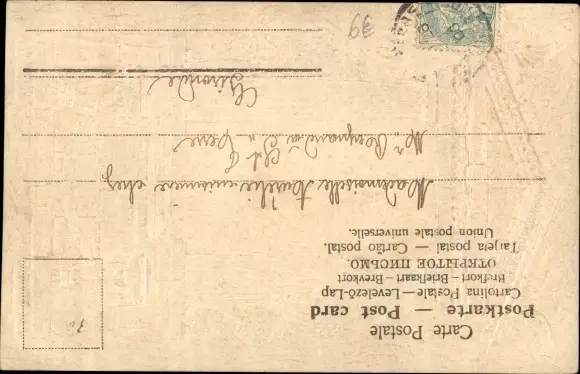 Carte Postale
Postkarte — Post card
Cartolina Postale — Levelező-Lap
Brefkort — Briefkaart — Brevkort
ОТКРЫТОЕ ПИСЬМО.
Tarjeta postal — Cartão postal.
Union postale universelle.
Mademoiselle Aurélie cuisinière chez
Mr
Gironde